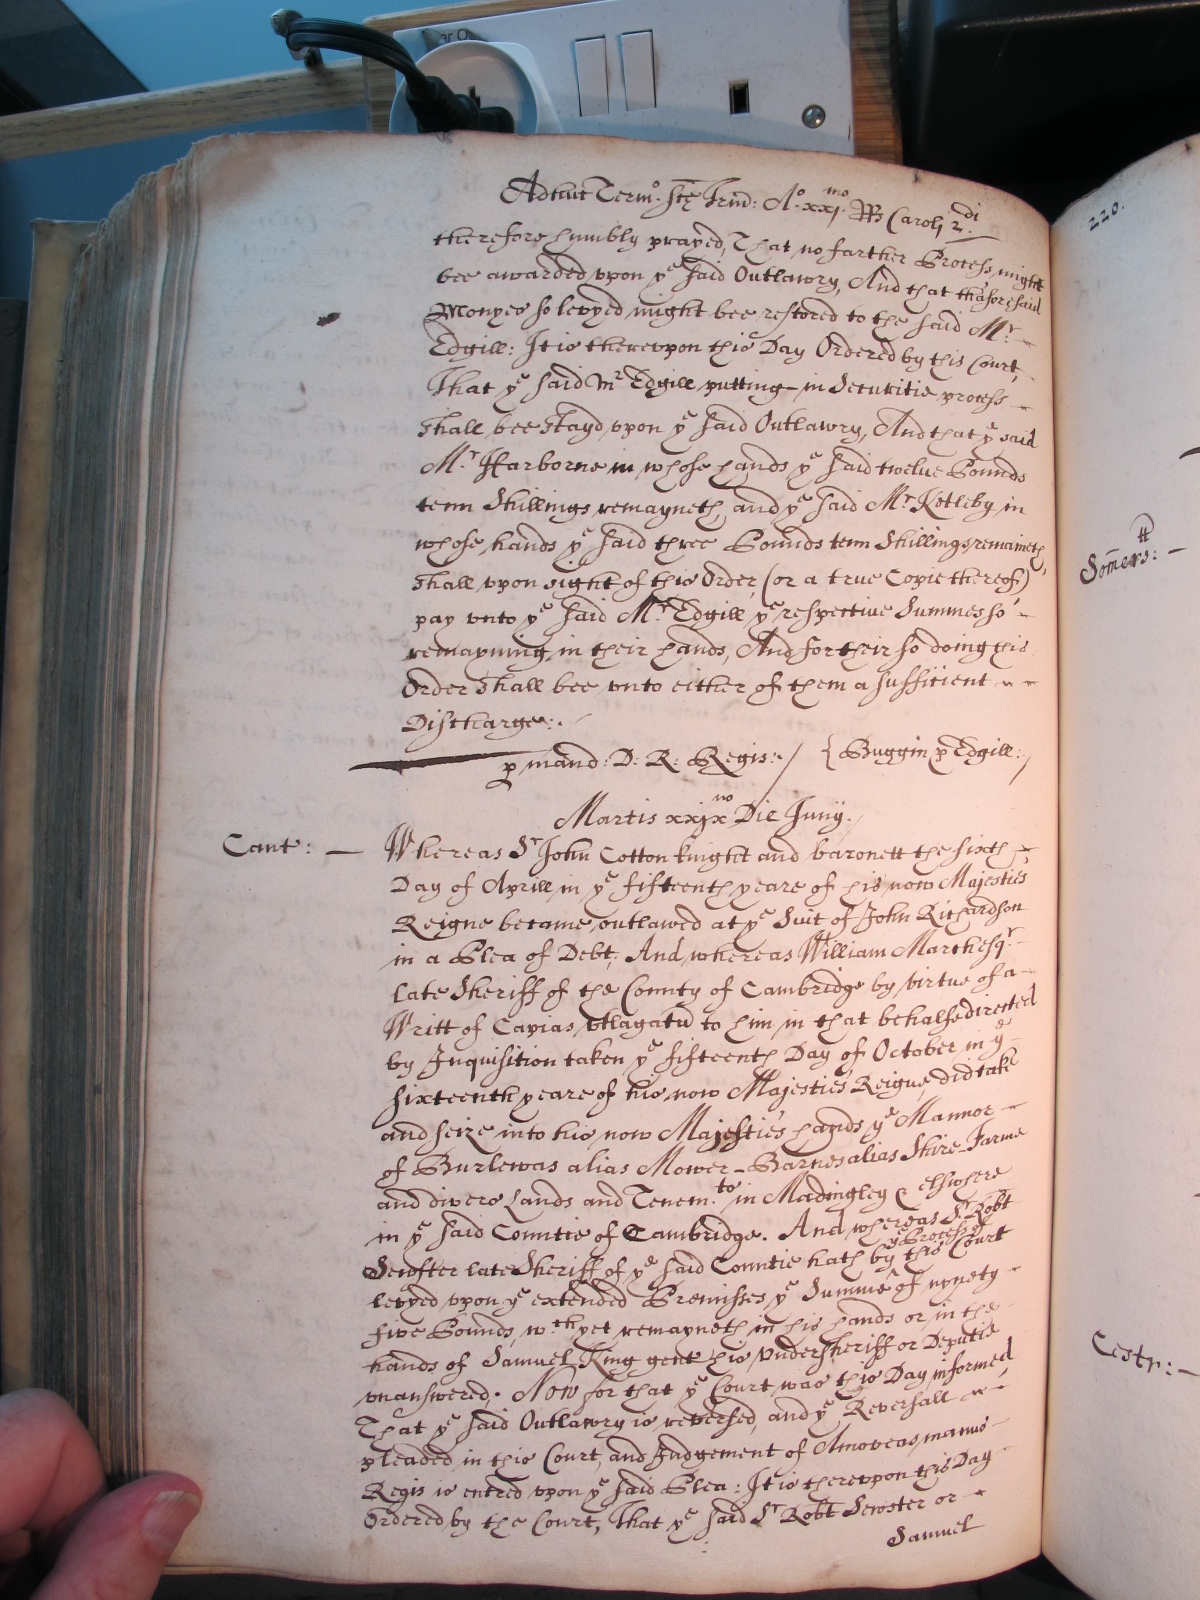 Adhuc Termo. Scte Trin: Ao. xxjmo. RRs Caroli 2di.
therefore humbly prayed, That no farther Process might
bee awarded vpon ye said Outlawry, And that thaforesaid
Monyes so levyed might bee restored to the said Mr.
Edgill: It is therevpon this Day Ordered by this Court,
That ye said Mr Edgill putting in Securitie process
shall bee stayd vpon ye said Outlawry, And that ye said
Mr. Harborne in whose hands ye said twelve Pounds
tenn Shillings remayneth, and ye said Mr Ketleby in
whose hands ye said three Pounds tenn Shillings remaineth,
shall vpon sight of this Order, (or a true Copie thereof)
pay vnto ye said Mr. Edgill ye respective Summes so
remayning in their hands, And for their so doing this
Order shall bee vnto either of them a sufficient
Discharge:.
p mand: D: R: Regis:. / { Buggin p Edgill: /
Martis xxjxno Die Junij.
Cant: Whereas Sr. John Cotton knight and baronett the sixth
Day of Aprill in ye fifteenth yeare of his now Majesties
Reigne became outlawed at ye Suit of John Richardson
in a Plea of Debt, And whereas William Marchesqr.
late Sheriff of the County of Cambridge by virtue of a
Writt of Capias vtlagatu to him in that behalfe directed
by Inquisition taken ye fifteenth Day of October in ye
sixteenth yeare of his now Majesties Reigne, did take
and seize into his now Majesties hands ye Mannor
of Burlewas alias Mower-Barnes alias Shire-Farme
and divers Lands and Tenem.ts in Madingley & elswhere
in ye said Countie of Cambridge. And whereas Sr. Robt
Sewster late Sheriff of ye said Countie hath by ye Process of this Court
levyed vpon ye extended Premisses ye Summe of nynety
five Pounds, wch yet remayneth in his hands or in the
hands of Samuel King gent his vndersheriff or Deputie
vnanswered. Now for that ye Court was this Day informed,
That ye said Outlawry is reversed, and ye Reversall
pleaded in this Court, and Judgement of Amoveas manus
Regis is entred vpon ye said Plea: It is therevpon this Day
Ordered by the Court, That ye said Sr Robt Sewster or
Samuel
220.
Somerstt:
Cestr: